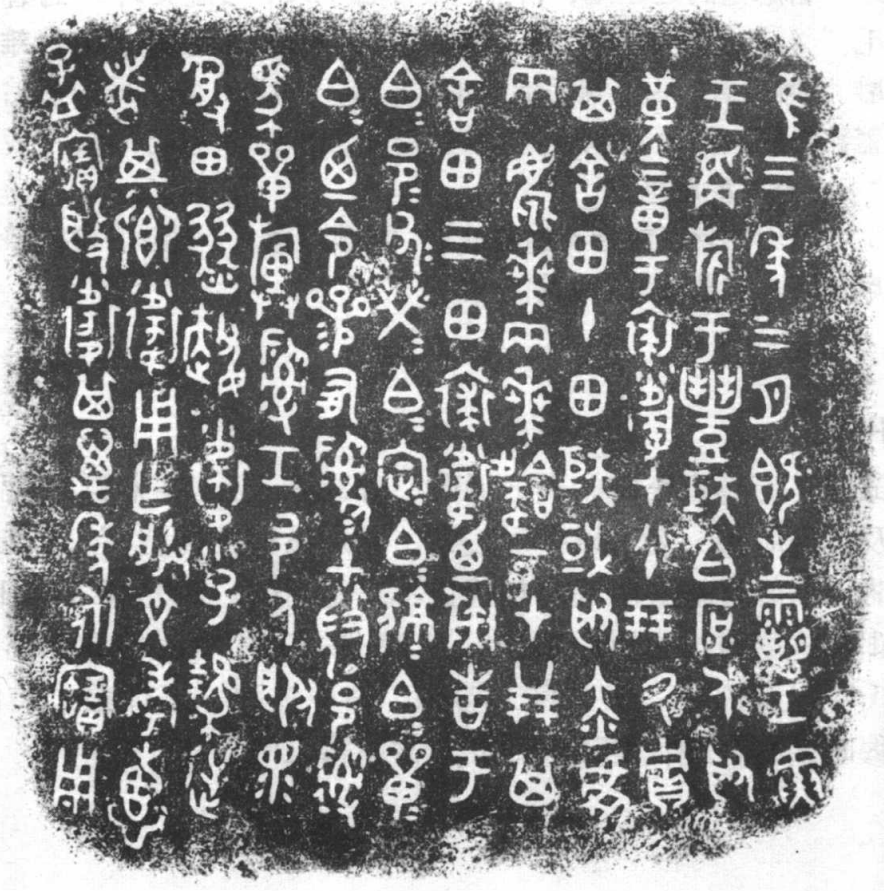 隹三年三月既生霸壬寅
王爯旂于豐矩白庶人取
堇章于裘衛才八十朋氒貯
其舍田十田矩或取赤虎
兩麀𠦪兩𠦪韐一才廿朋其
舍田三田裘衛乃彘告于
白邑父榮白定白𤞷白單
白乃令參有𤔲𤔲土微邑𤔲
馬單旟𤔲工邑人服眔
受田燹趞衛小子𦅫逆
者其鄉衛用乍朕文考惠
孟寶般衛其萬年永寶用